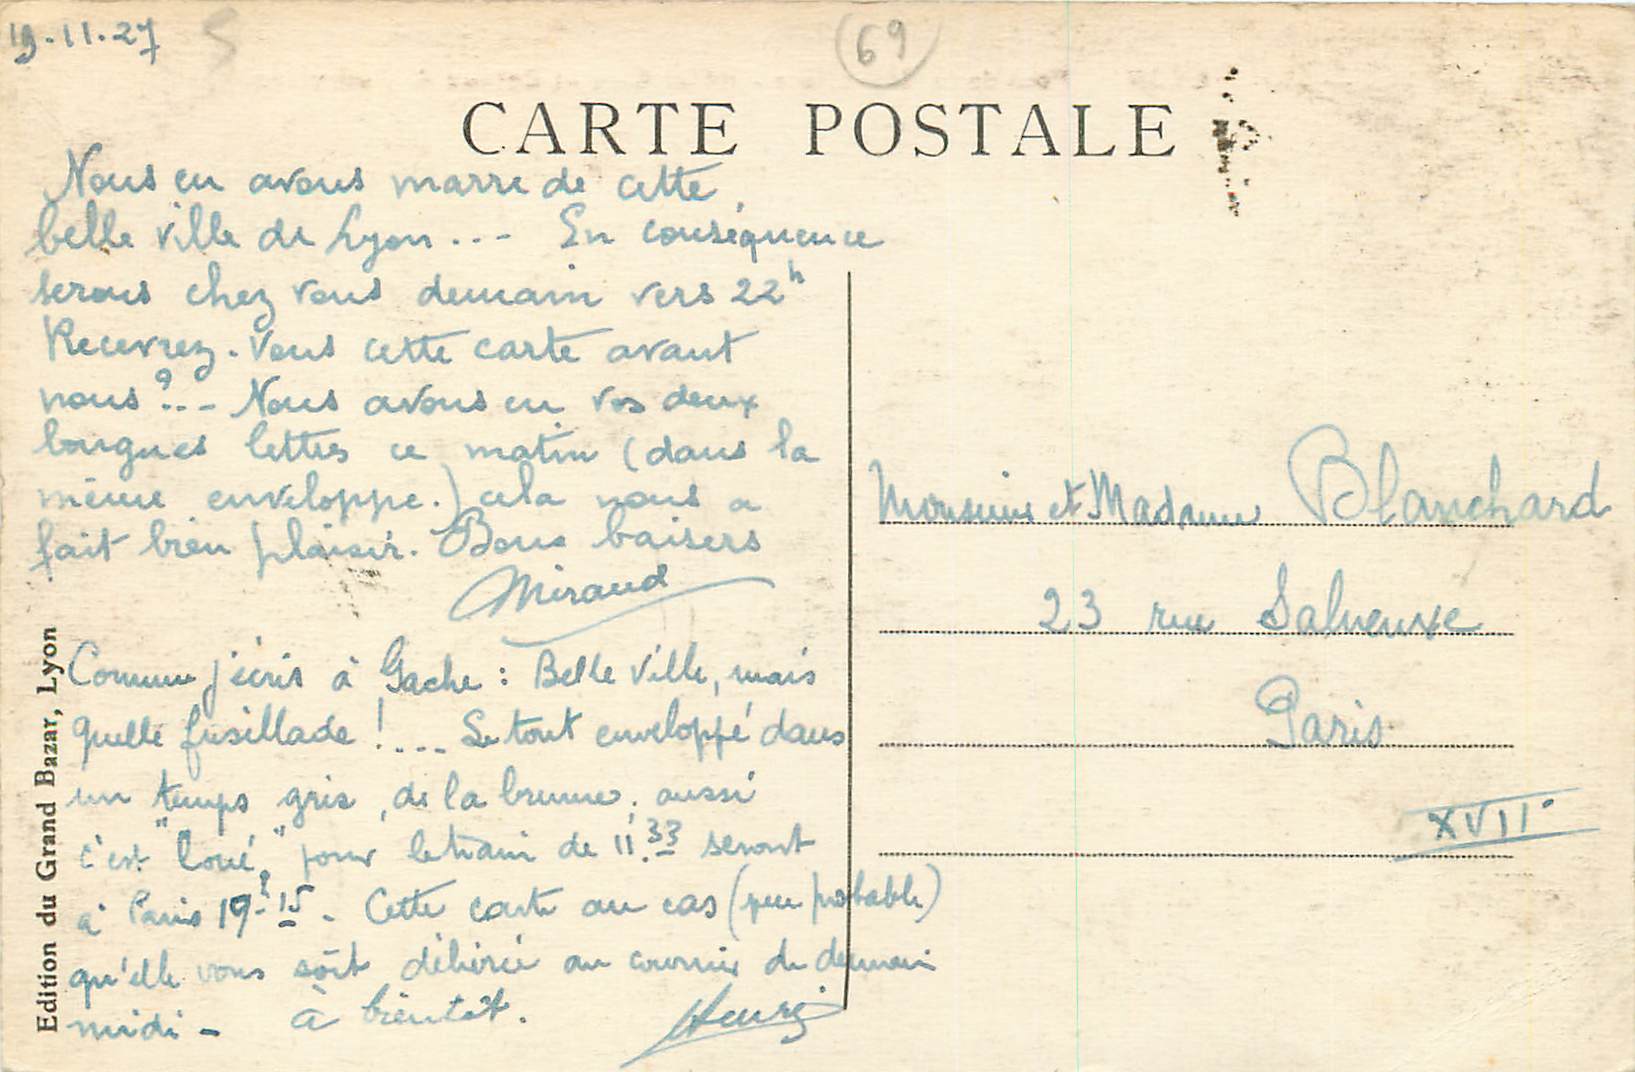 19.11.27
69
CARTE POSTALE
Nous en avons marre de cette
belle ville de Lyon... En conséquence
serons chez vous demain vers 22h
Recevrez-vous cette carte avant
nous?... Nous avons eu vos deux
longues lettres ce matin (dans la
même enveloppe.) cela nous a
fait bien plaisir. Bons baisers
Comme j'écris à Gache : Belle Ville, mais
quelle fusillade !.... Le tout enveloppé dans
un temps gris, de la brume, aussi
c'est "loué," pour le train de 11.33 serons
à Paris 19.15. Cette carte au cas (peu probable)
qu'elle vous soit délivrée au courrier de demain
midi - à bientôt.
Henri
Edition du Grand Bazar, Lyon
Monsieur et Madame Blanchard
23 rue Salneuve
Paris
XVII°